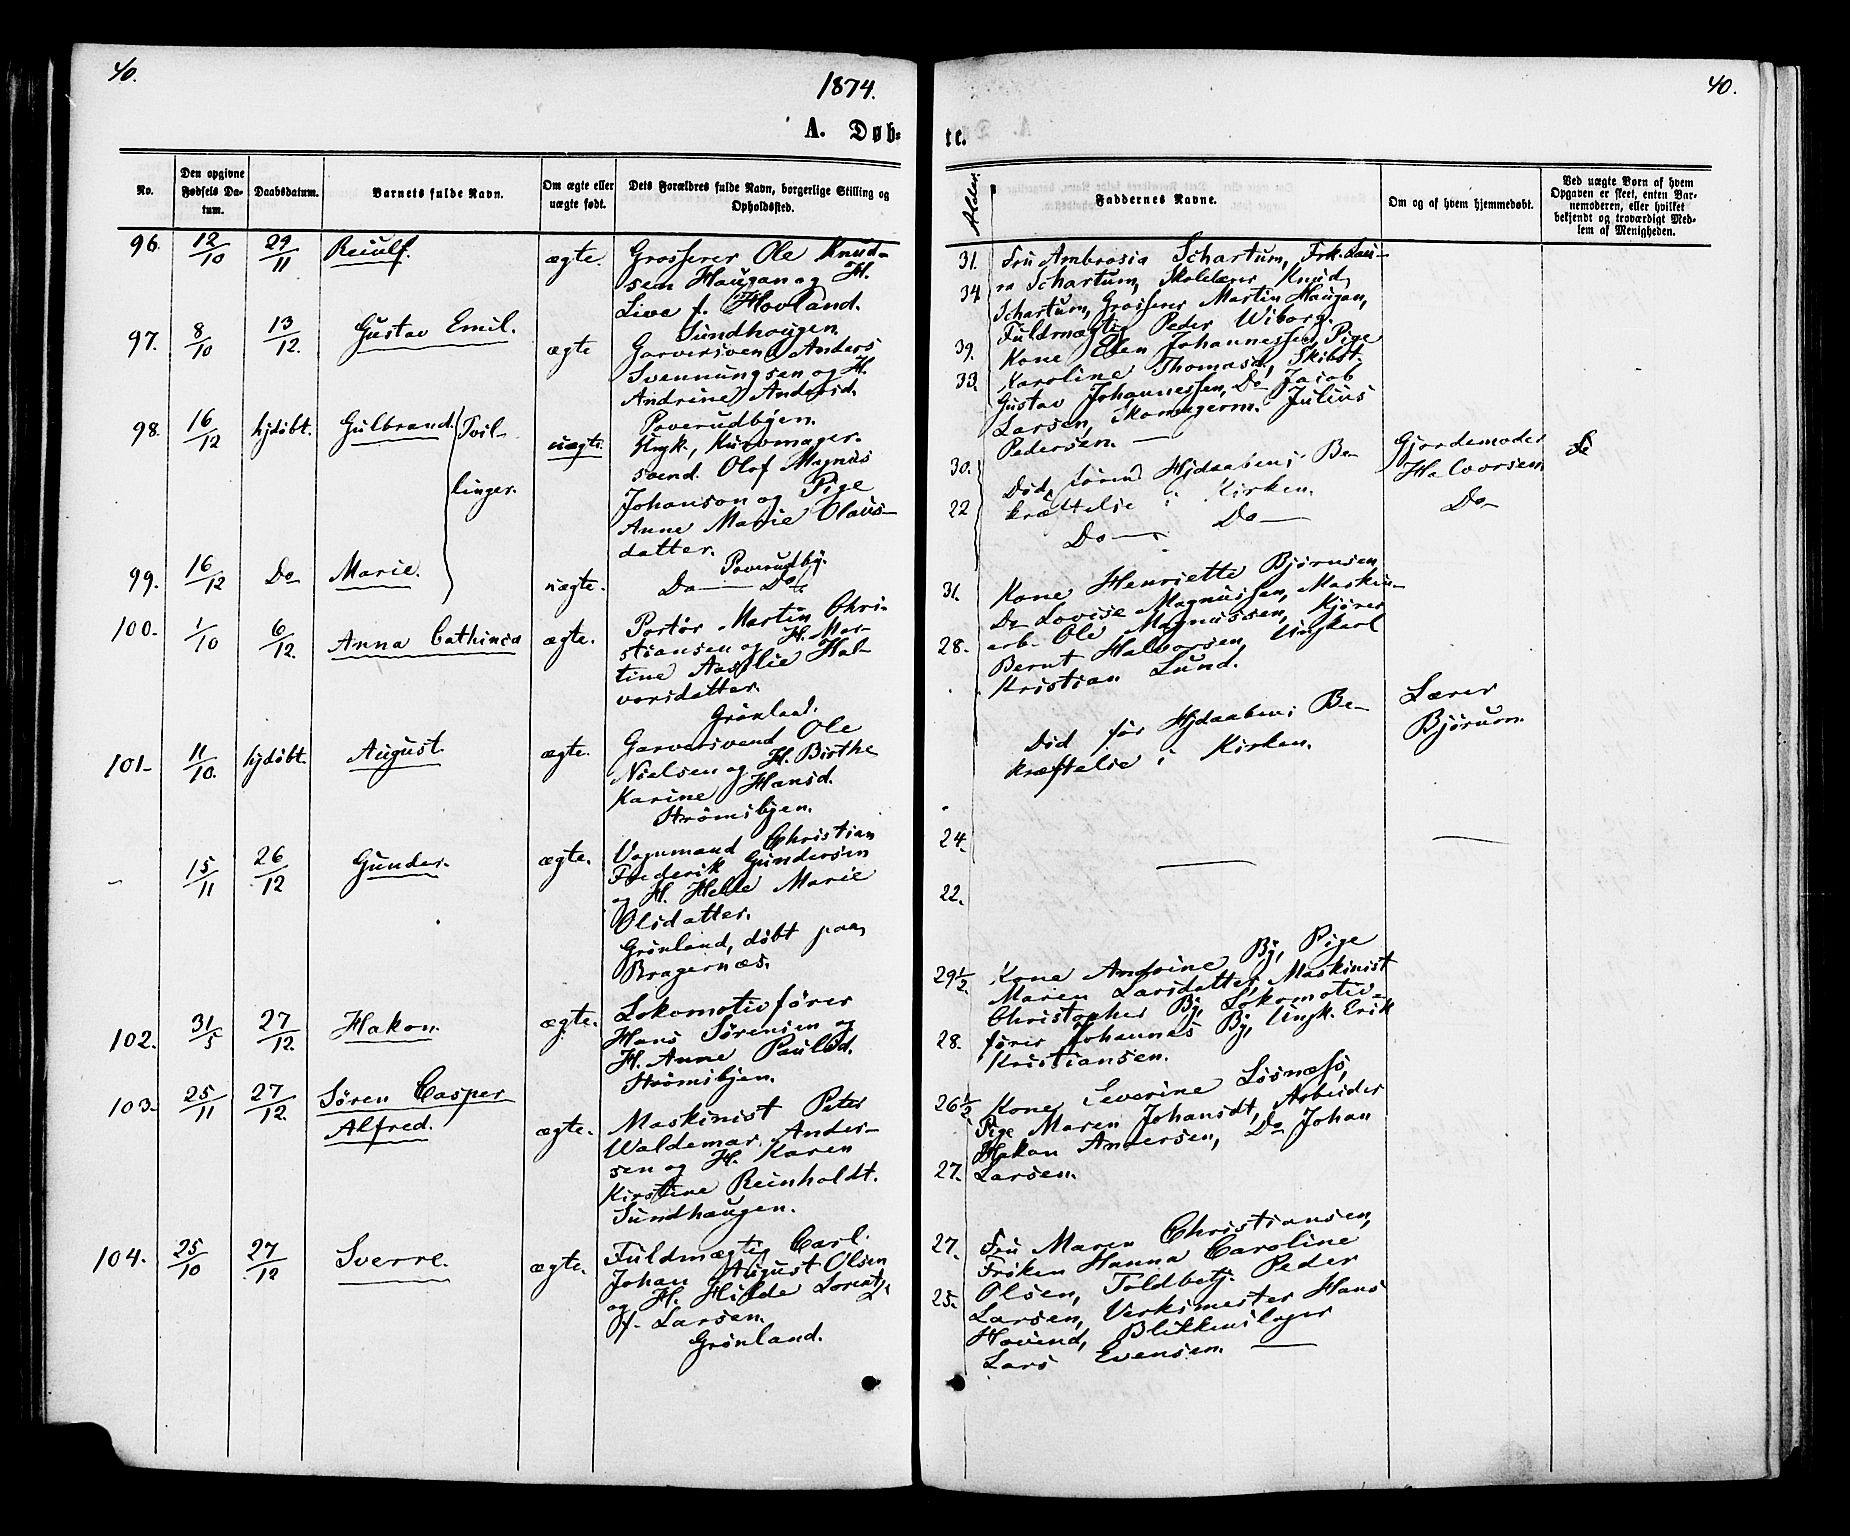 40.
1874.
40.
A. Døb-
te.
No.
Den opgivne Fødsels Da-
tum.
Daabsdatum.
Barnets fulde Navn.
Om ægte eller
uægte født.
Dets Forældres fulde Navn, borgerlige Stilling og
Opholdssted.
Alder.
Faddernes Navne.
Om og af hvem hjemmedøbt.
Ved uægte Børn af hvem
Opgaven er skeet, enten Bar-
nemoderen, eller hvilket
bekjendt og troværdigt Med-
lem af Menigheden.
96. 12/10 29/11 Reiulf. ægte.
Grosserer Ole Knud-
sen Haugan og H.
Live f. Hovland.
Sundhaugen.
31.
34
Fru Ambrosia Schartum, Frk. Lau-
ra Schartum, Skolelærer Knud
Schartum, Grosserer Martin Haugan,
Fuldmægtig Peder Wiborg.
97. 8/10 13/12. Gustav Emil. ægte
Garversvend Anders
Svennungsen og H.
Andrine Andersd.
Poverudbyen.
39.
33.
Kone Elen Johannessen, Pige
Karoline Thomasd, Skibst.
Gustav Johannessen, Do Jacob
Larsen, Skomagerm. Julius
Pedersen.
98. 16/12 hjdøbt. Gulbrand. Tvil-
linger. uægte.
Ungk., Kurvmager-
svend Olof Magnus
Johanson og Pige
Anne Marie Olaus-
datter.
Poverudby.
30.
22
Død, førend Hjdaabens Be-
kræftelse i Kirken.
Gjordemoder
Halvorsen
99. 16/12 Do Marie. uægte.
Do Do
Do Do
Do
100. 1/10 6/12. Anna Cathinca ægte.
Portør Martin Chri-
stiansen og H. Mar-
tine Aaslie Hal-
vorsdatter.
Grønland.
31.
28.
Kone Henriette Bjørnsen,
Do Lovise Magnussen, Maskin-
arb. Ole Magnussen, Kjører
Bernt Halvorsen, Ungkarl
Kristian Lund.
101. 11/10. hjdøbt. August. ægte.
Garversvend Ole
Nielsen og H. Birthe
Karine Hansd.
Strømsbyen.
24.
22.
Død før Hjdaabens Be-
kræftelse i Kirken.
Lærer
Bjørum.
- 15/11 26/12 Gunder. ægte.
Vognmand Christian
Frederik Gundersen
og H. Helle Marie
Olsdatter.
Grønland, døbt paa
Bragernæs.
102. 31/5 27/12. Hakon. ægte.
Lokomotivfører
Hans Sørensen og
H. Anne Paulsd.
Strømsbyen.
29½
28.
Kone Andrine By, Pige
Maren Larsdatter, Maskinist
Christopher By, Lokomotiv-
fører Johannes By, Ungk. Erik
Kristiansen.
103. 25/11 27/12. Søren Casper
Alfred. ægte.
Maskinist Peter
Waldemar Ander-
sen og H. Karen
Kirstine Reinholdt.
Sundhaugen.
26½
27.
Kone Severine Løsnæss,
Pige Maren Johansdt, Arbeider
Hakon Andersen, Do Johan
Larsen.
104. 25/10 27/12 Sverre. ægte.
Fuldmægtig Carl
Johan August Olsen
og H. Hilde Lorentz.
f. Larsen.
Grønland.
27.
25.
Fru Maren Christiansen,
Frøken Hanna Caroline
Olsen, Toldbetj. Peder
Larsen, Verksmester Hans
Hovind, Blikkenslager
Lars Evensen.